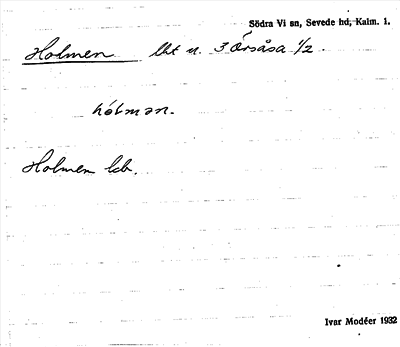 Södra Vi sn, Sevede hd, Kalm. 1.
Holmen lht u. 3 Örsåsa 1/2.
hólmən.
Holmen lcb.
Ivar Modéer 1932